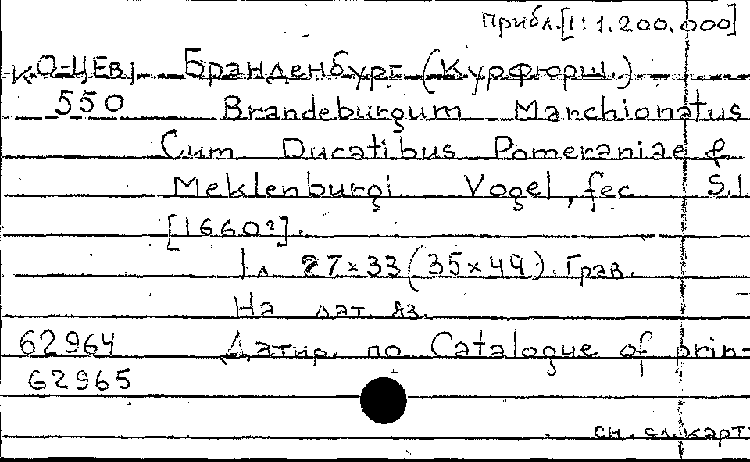 прибл.[1:1.200.000]
К О-ЦЕв1 Бранденбург (Курфюрш.)
550 Brandeburgum Marchionatus
Cum Ducatibus Pomeraniae &
Meklenburgi Vogel, fec S.l
[1660?].
1 л 27×33(35×49). Грав.
На лат. яз.
62964 Датир. по Catalogue of prin-
62965
см. сл. карт